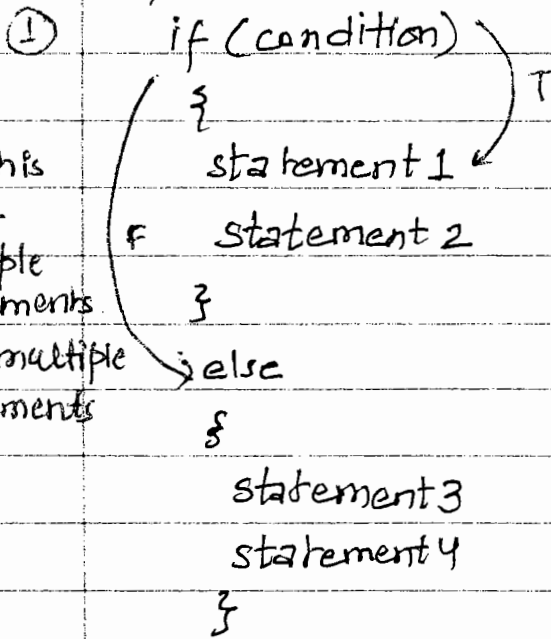 ① if (condition)
{
T
his
statement 1
F
statement 2
ple
ments
}
multiple
else
ments
{
statement 3
statement 4
}